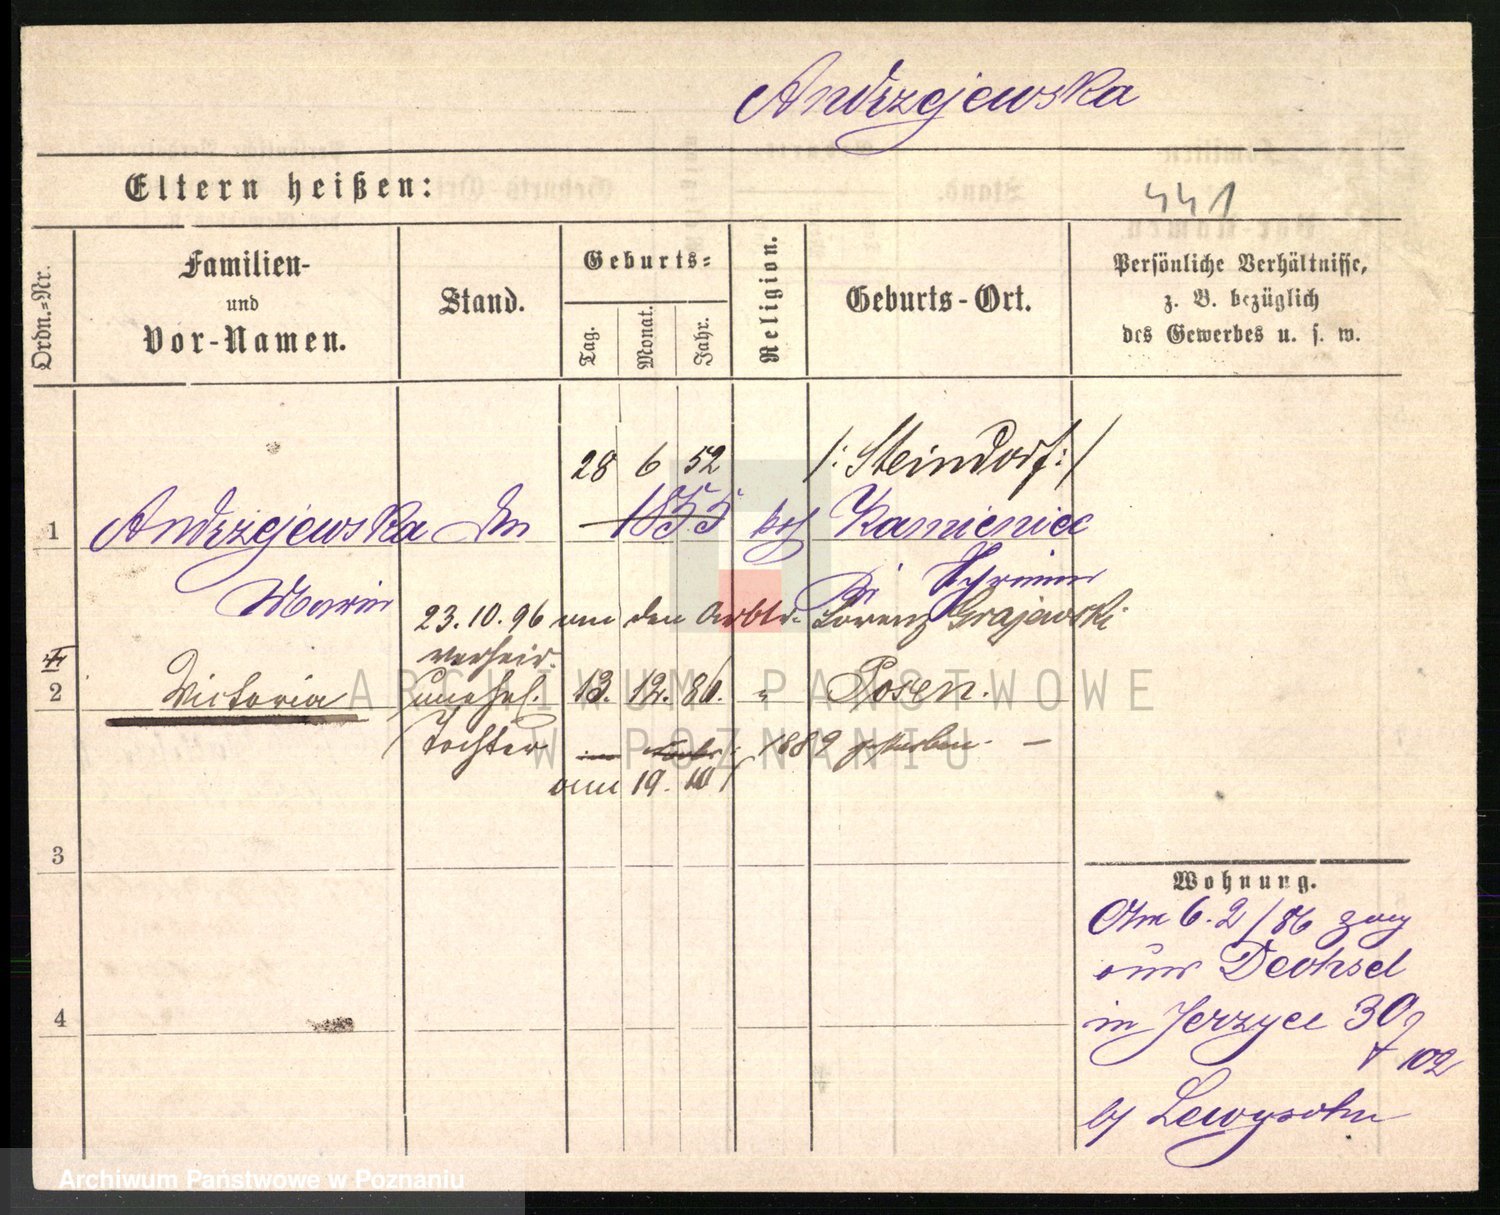 Andrzejewska
Eltern heißen:
441
Ordn.-Nr.
Familien-
und
Vor-Namen.
Stand.
Geburts-
Tag.
Monat.
Jahr.
Religion.
Geburts-Ort.
Persönliche Verhältnisse,
z. B. bezüglich
des Gewerbes u. s. w.
28 6 52 /: Steindorf :/
1 Andrzejewska 1855 Kamieniec
Marie
23.10.96 den Arbtr. Lorenz Grajewski
verheir.
2 Victoria unehel. 13. 12. 86. " Posen.
Tochter 1889 gestorben. —
am 19. 10
3
4
Wohnung.
Am 6.2/86 zog
aus Dechsel
in Jerzyce 30
102
by Lewysohn
ARCHIWUM PAŃSTWOWE
W POZNANIU
Archiwum Państwowe w Poznaniu